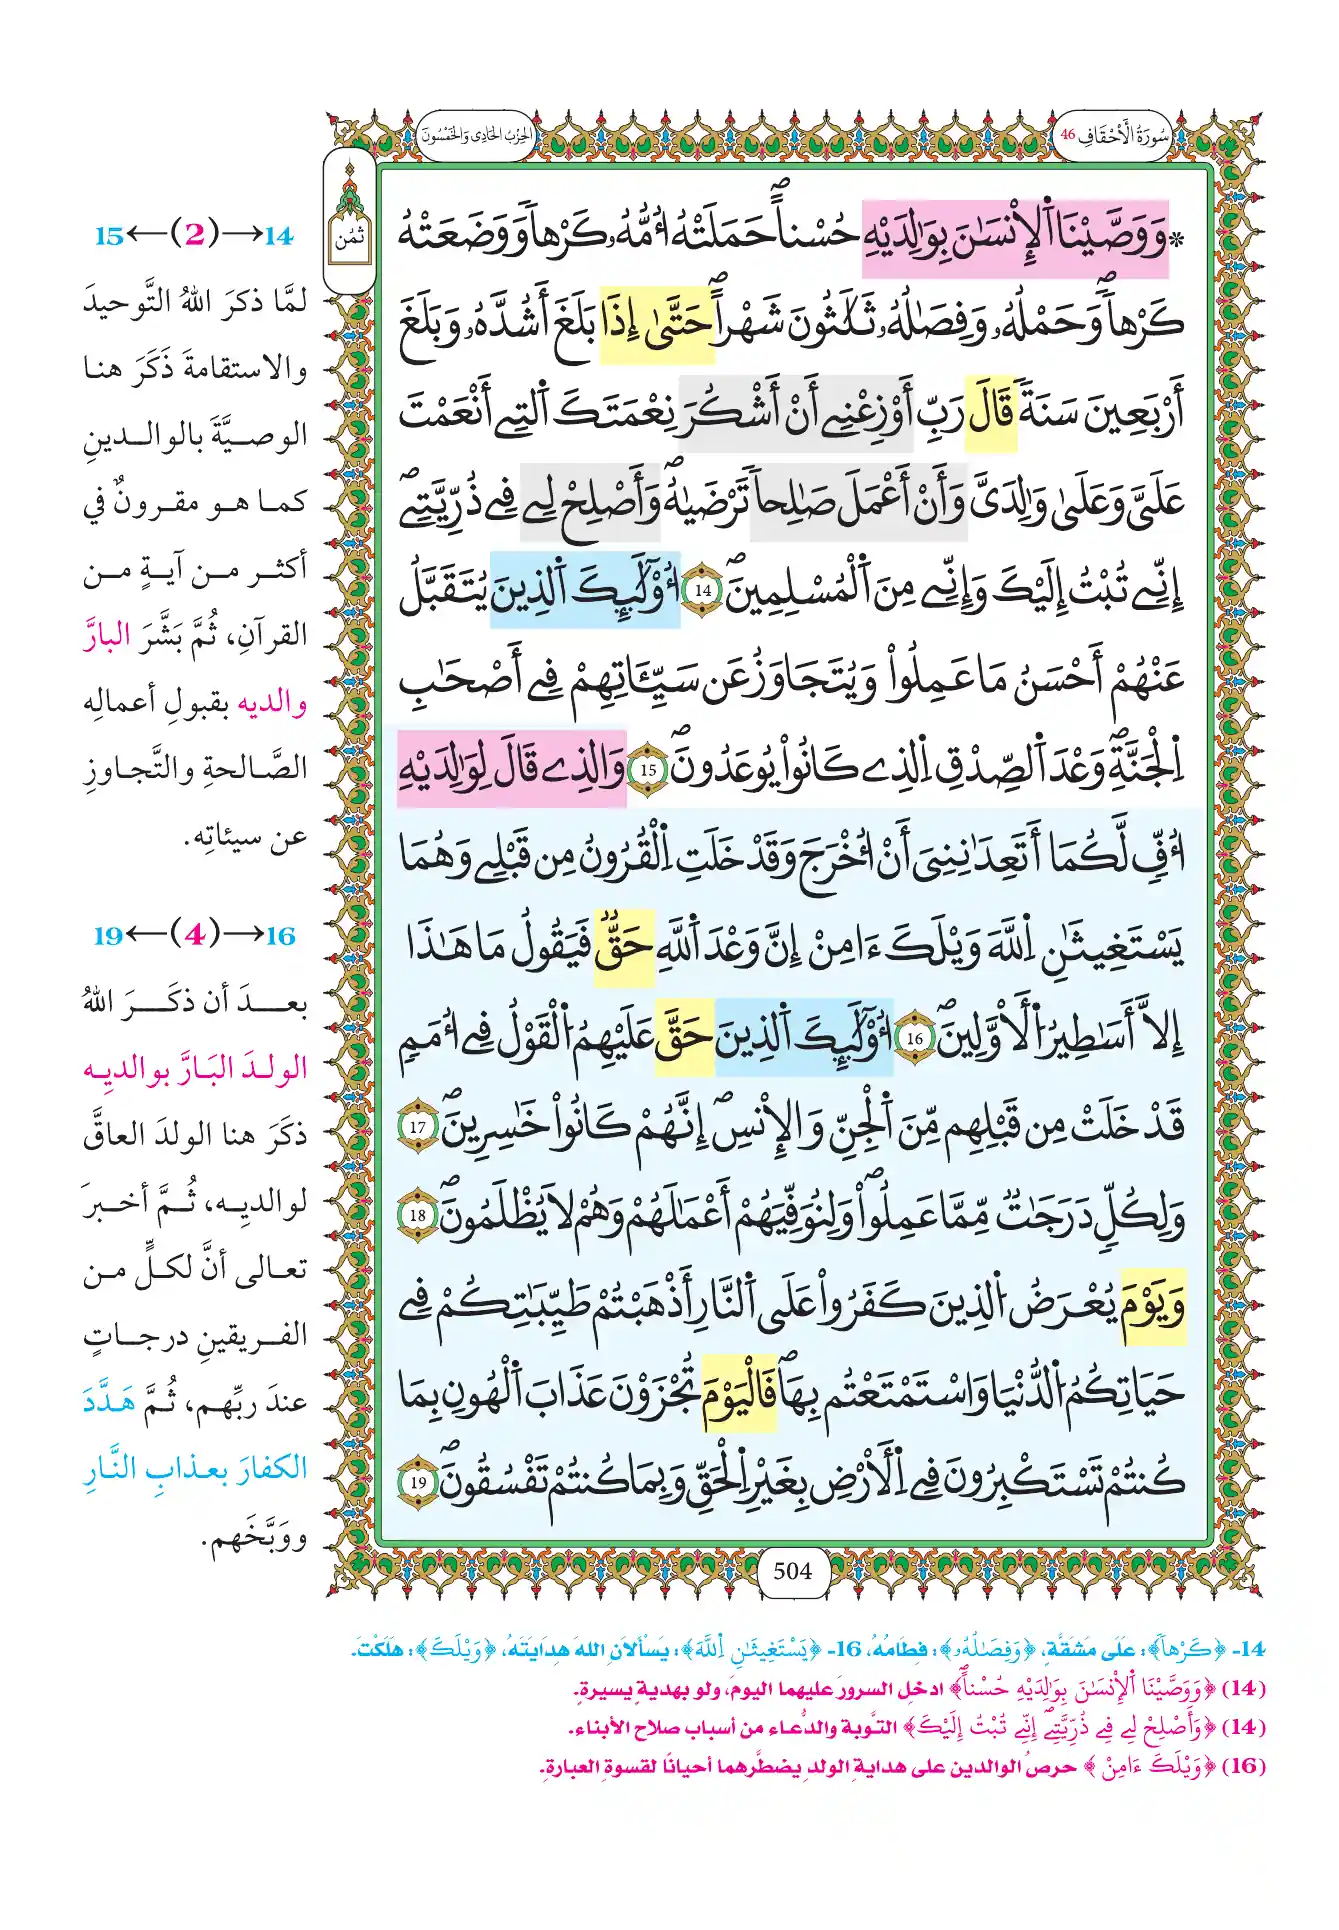 سُورَةُ الْأَحْقَافِ 46
الحِزْبُ الحَادِي وَالخَمْسُونَ
ثُمُن
* وَوَصَّيْنَا اَ۬لْإِنسَٰنَ بِوَٰلِدَيْهِ حُسْناًۖ حَمَلَتْهُ أُمُّهُۥ كَرْهاٗ وَوَضَعَتْهُ
كَرْهاٗۖ وَحَمْلُهُۥ وَفِصَٰلُهُۥ ثَلَٰثُونَ شَهْراًۖ حَتَّىٰ إِذَا بَلَغَ أَشُدَّهُۥ وَبَلَغَ
أَرْبَعِينَ سَنَةٗ قَالَ رَبِّ أَوْزِعْنِےٓ أَنْ أَشْكُرَ نِعْمَتَكَ اَ۬لتِےٓ أَنْعَمْتَ
عَلَيَّ وَعَلَىٰ وَٰلِدَيَّ وَأَنْ أَعْمَلَ صَٰلِحاٗ تَرْضَيٰهُۖ وَأَصْلِحْ لِے فِے ذُرِّيَّتِيَۖ
إِنِّے تُبْتُ إِلَيْكَ وَإِنِّے مِنَ اَ۬لْمُسْلِمِينَۖ 14 أُوْلَٰٓئِكَ اَ۬لذِينَ يُتَقَبَّلُ
عَنْهُمْ أَحْسَنُ مَا عَمِلُواْ وَيُتَجَاوَزُ عَن سَيِّـَٔاتِهِمْ فِےٓ أَصْحَٰبِ
اِ۬لْجَنَّةِۖ وَعْدَ اَ۬لصِّدْقِ اِ۬لذِے كَانُواْ يُوعَدُونَۖ 15 وَالذِے قَالَ لِوَٰلِدَيْهِ
أُفّٖ لَّكُمَآ أَتَعِدَٰنِنِيَ أَنْ أُخْرَجَ وَقَدْ خَلَتِ اِ۬لْقُرُونُ مِن قَبْلِے وَهُمَا
يَسْتَغِيثَٰنِ اِ۬للَّهَ وَيْلَكَ ءَامِنْ إِنَّ وَعْدَ اَ۬للَّهِ حَقّٞ فَيَقُولُ مَا هَٰذَآ
إِلَّآ أَسَٰطِيرُ اُ۬لْأَوَّلِينَۖ 16 أُوْلَٰٓئِكَ اَ۬لذِينَ حَقَّ عَلَيْهِمُ اُ۬لْقَوْلُ فِےٓ أُمَمٖ
قَدْ خَلَتْ مِن قَبْلِهِم مِّنَ اَ۬لْجِنِّ وَالْإِنسِۖ إِنَّهُمْ كَانُواْ خَٰسِرِينَۖ 17
وَلِكُلّٖ دَرَجَٰتٞ مِّمَّا عَمِلُواْۖ وَلِنُوَفِّيَهُمْ أَعْمَٰلَهُمْ وَهُمْ لَا يُظْلَمُونَۖ 18
وَيَوْمَ يُعْرَضُ اُ۬لذِينَ كَفَرُواْ عَلَى اَ۬لنَّارِ أَذْهَبْتُمْ طَيِّبَٰتِكُمْ فِے
حَيَاتِكُمُ اُ۬لدُّنْيَا وَاسْتَمْتَعْتُم بِهَاۖ فَالْيَوْمَ تُجْزَوْنَ عَذَابَ اَ۬لْهُونِ بِمَا
كُنتُمْ تَسْتَكْبِرُونَ فِے اِ۬لْأَرْضِ بِغَيْرِ اِ۬لْحَقِّ وَبِمَا كُنتُمْ تَفْسُقُونَۖ 19
504
15←(2)→14
لمَّا ذكرَ اللهُ التَّوحيدَ
والاستقامةَ ذَكَرَ هنا
الوصيَّةَ بالوالدينِ
كما هو مقرونٌ في
أكثر من آيةٍ من
القرآنِ، ثُمَّ بَشَّرَ البارَّ
والديه بقبولِ أعمالِه
الصَّالحةِ والتَّجاوزِ
عن سيئاتِه.
19←(4)→16
بعدَ أن ذكَرَ اللهُ
الولدَ البَارَّ بوالديِه
ذكَرَ هنا الولدَ العاقَّ
لوالديِه، ثُمَّ أخبرَ
تعالى أنَّ لكلٍّ من
الفريقينِ درجاتٍ
عندَ ربِّهم، ثُمَّ هَدَّدَ
الكفارَ بعذابِ النَّارِ
ووَبَّخَهم.
14- ﴿كَرْهاٗ﴾: عَلَى مَشَقَّةٍ، ﴿وَفِصَٰلُهُۥ﴾: فِطَامُهُ، 16- ﴿يَسْتَغِيثَٰنِ اِ۬للَّهَ﴾: يَسْأَلَانِ اللهَ هِدَايَتَهُ، ﴿وَيْلَكَ﴾: هَلَكْتَ.
(14) ﴿وَوَصَّيْنَا اَ۬لْإِنسَٰنَ بِوَٰلِدَيْهِ حُسْناًۖ﴾ ادخل السرورَ عليهما اليومَ، ولو بهديةٍ يسيرةٍ.
(14) ﴿وَأَصْلِحْ لِے فِے ذُرِّيَّتِيَۖ إِنِّے تُبْتُ إِلَيْكَ﴾ التَّوبة والدُّعاء من أسباب صلاح الأبناء.
(16) ﴿وَيْلَكَ ءَامِنْ﴾ حرصُ الوالدين على هدايةِ الولدِ يضطَّرهما أحيانًا لقسوةِ العبارةِ.